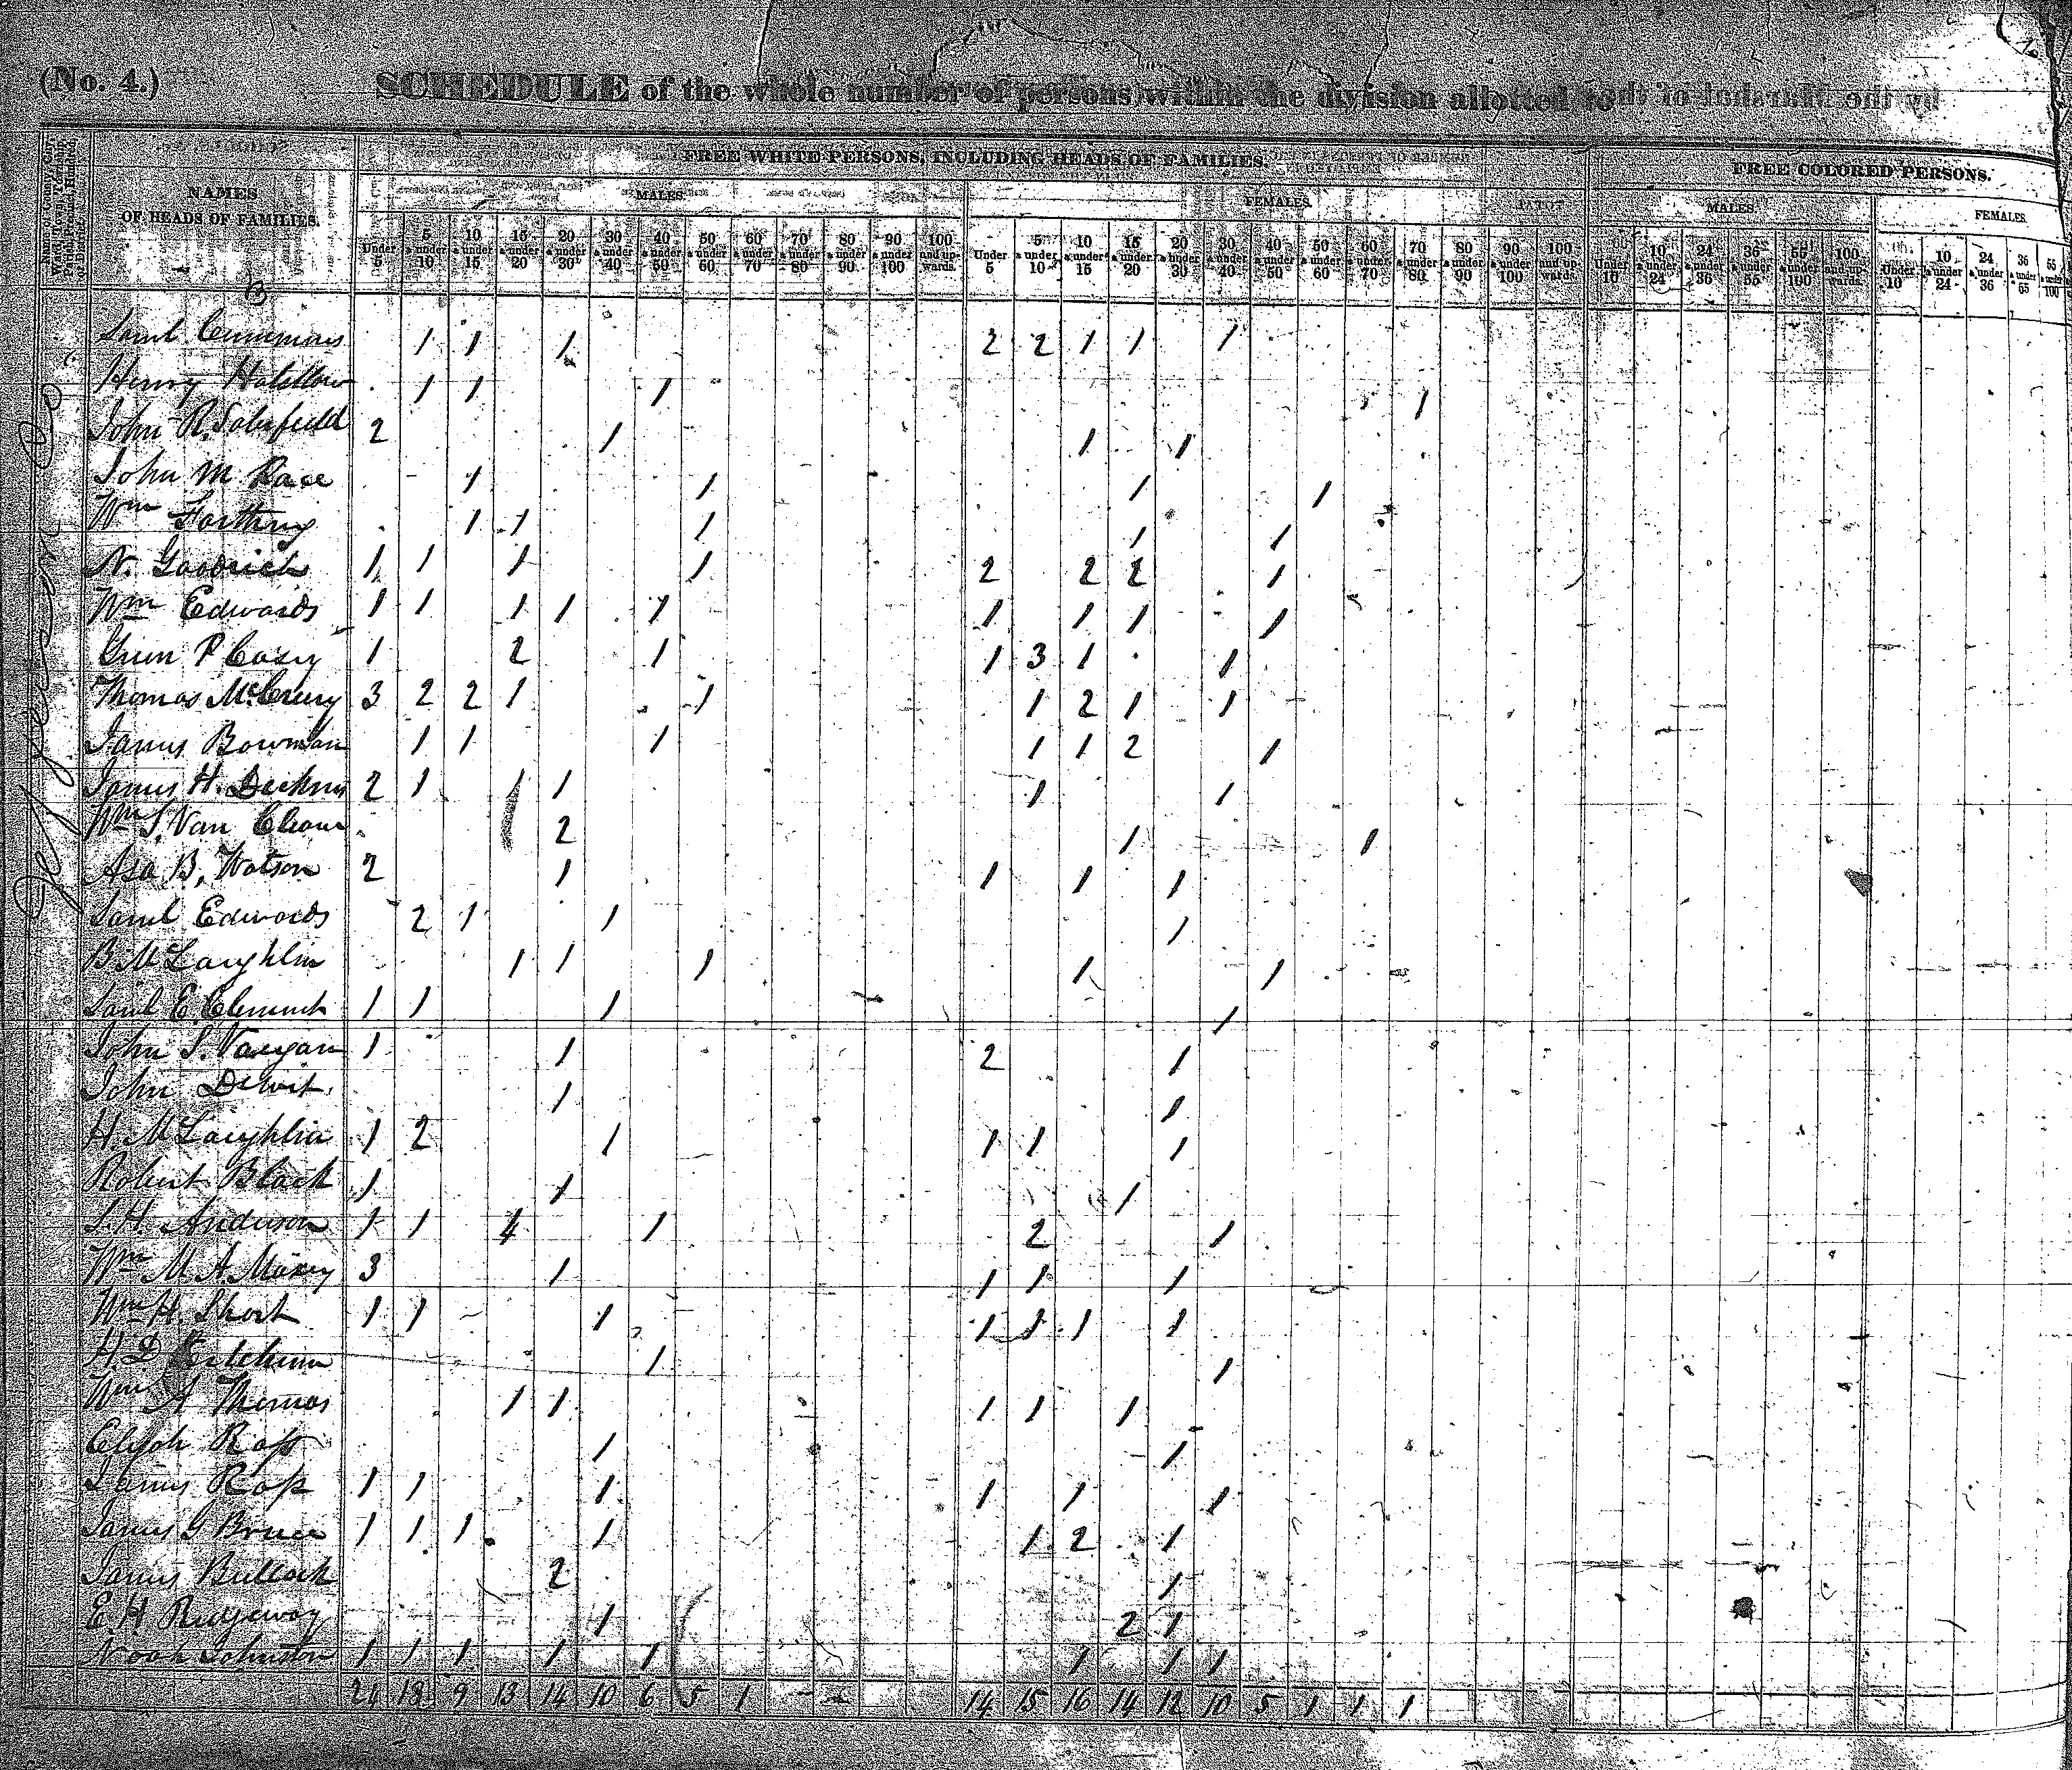 (No. 4.)
SCHEDULE of the whole number of persons within the division allotted to
by the Marshal of the
Name of County, City, Ward, Town, Township, Parish, Precinct, Hundred, or District.
NAMES
OF HEADS OF FAMILIES.
FREE WHITE PERSONS, INCLUDING HEADS OF FAMILIES.
FREE COLORED PERSONS.
MALES.
FEMALES.
MALES.
FEMALES.
Under 5
5 & under 10
10 & under 15
15 & under 20
20 & under 30
30 & under 40
40 & under 50
50 & under 60
60 & under 70
70 & under 80
80 & under 90
90 & under 100
100 and upwards.
Under 5
5 & under 10
10 & under 15
15 & under 20
20 & under 30
30 & under 40
40 & under 50
50 & under 60
60 & under 70
70 & under 80
80 & under 90
90 & under 100
100 and upwards.
Under 10
10 & under 24
24 & under 36
36 & under 55
55 & under 100
100 and upwards.
Under 10
10 & under 24
24 & under 36
36 & under 55
55 & under 100
Jefferson Co.
Saml Cummins 1 1 1 2 2 1 1 1
Henry 1 1 1 1
John R. 2 1 1 1
John M Pace 1 1 1 1
Wm Farthing 1 1 1 1 1
N. Goodrich 1 1 1 1 2 2 2 1
Wm Edwards 1 1 1 1 1 1 1 1 1
Green P Casey 1 2 1 1 3 1 1
Thomas McCrury 3 2 2 1 1 1 2 1 1
James Bowman 1 1 1 1 1 2 1
James H. 2 1 1 1 1 1
Wm S. Van 2 1 1
Asa B. Watson 2 1 1 1 1
Saml Edwards 2 1 1 1
B McLaughlin 1 1 1 1 1
Saml E. Clement 1 1 1 1
John S. Vaugan 1 1 2 1
John Dewit 1 1
H McLaughlin 1 2 1 1 1 1
Robert Black 1 1 1
S. H. Anderson 1 1 4 1 2 1
Wm M A Maxey 3 1 1 1 1
Wm H. Short 1 1 1 1 1 1 1
H. D. 1 1
Wm A Thomas 1 1 1 1 1
Elijah Ross 1 1
James Ross 1 1 1 1 1 1
James G Bruce 1 1 1 1 1 2 1
James Bullock 2 1
E. H Ridgeway 1 2 1
Noah Johnston 1 1 1 1 1 1 1 1
24 18 9 13 14 10 6 5 1 14 15 16 14 12 10 5 1 1 1